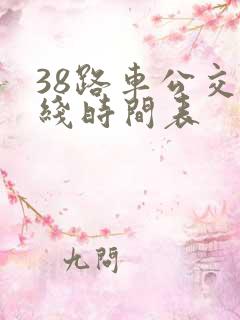 38路車公交
綫時間表
九問